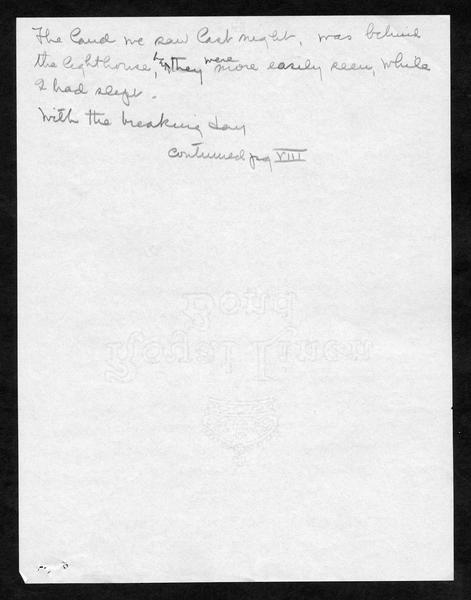 The land we saw last night, was behind
the lighthouse, they were more easily seen, while
I had slept.
With the breaking day
continued pag VIII